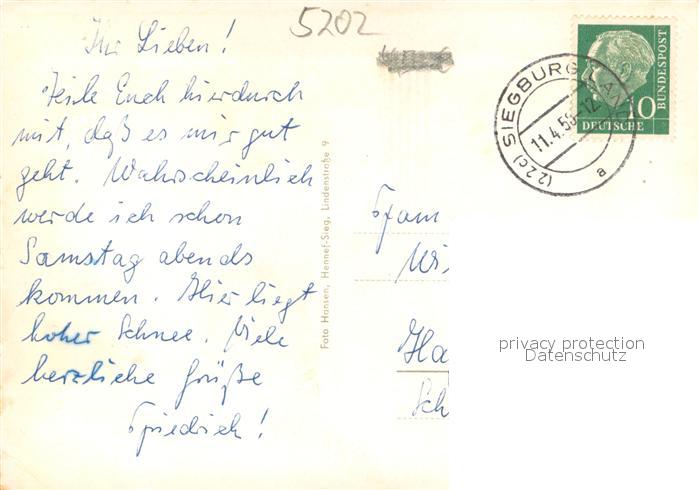 5202
Ihr Lieben!
Teile Euch hierdurch
mit, daß es mir gut
geht. Wahrscheinlich
werde ich schon
Samstag abends
kommen. Hier liegt
hoher Schnee. Viele
herzliche Grüße
Friedrich!
Foto Hansen, Hennef-Sieg, Lindenstraße 9
(22c) SIEGBURG
11.4.58-12
a
10
DEUTSCHE
BUNDESPOST
Wi
Ha
Sch
privacy protection
Datenschutz